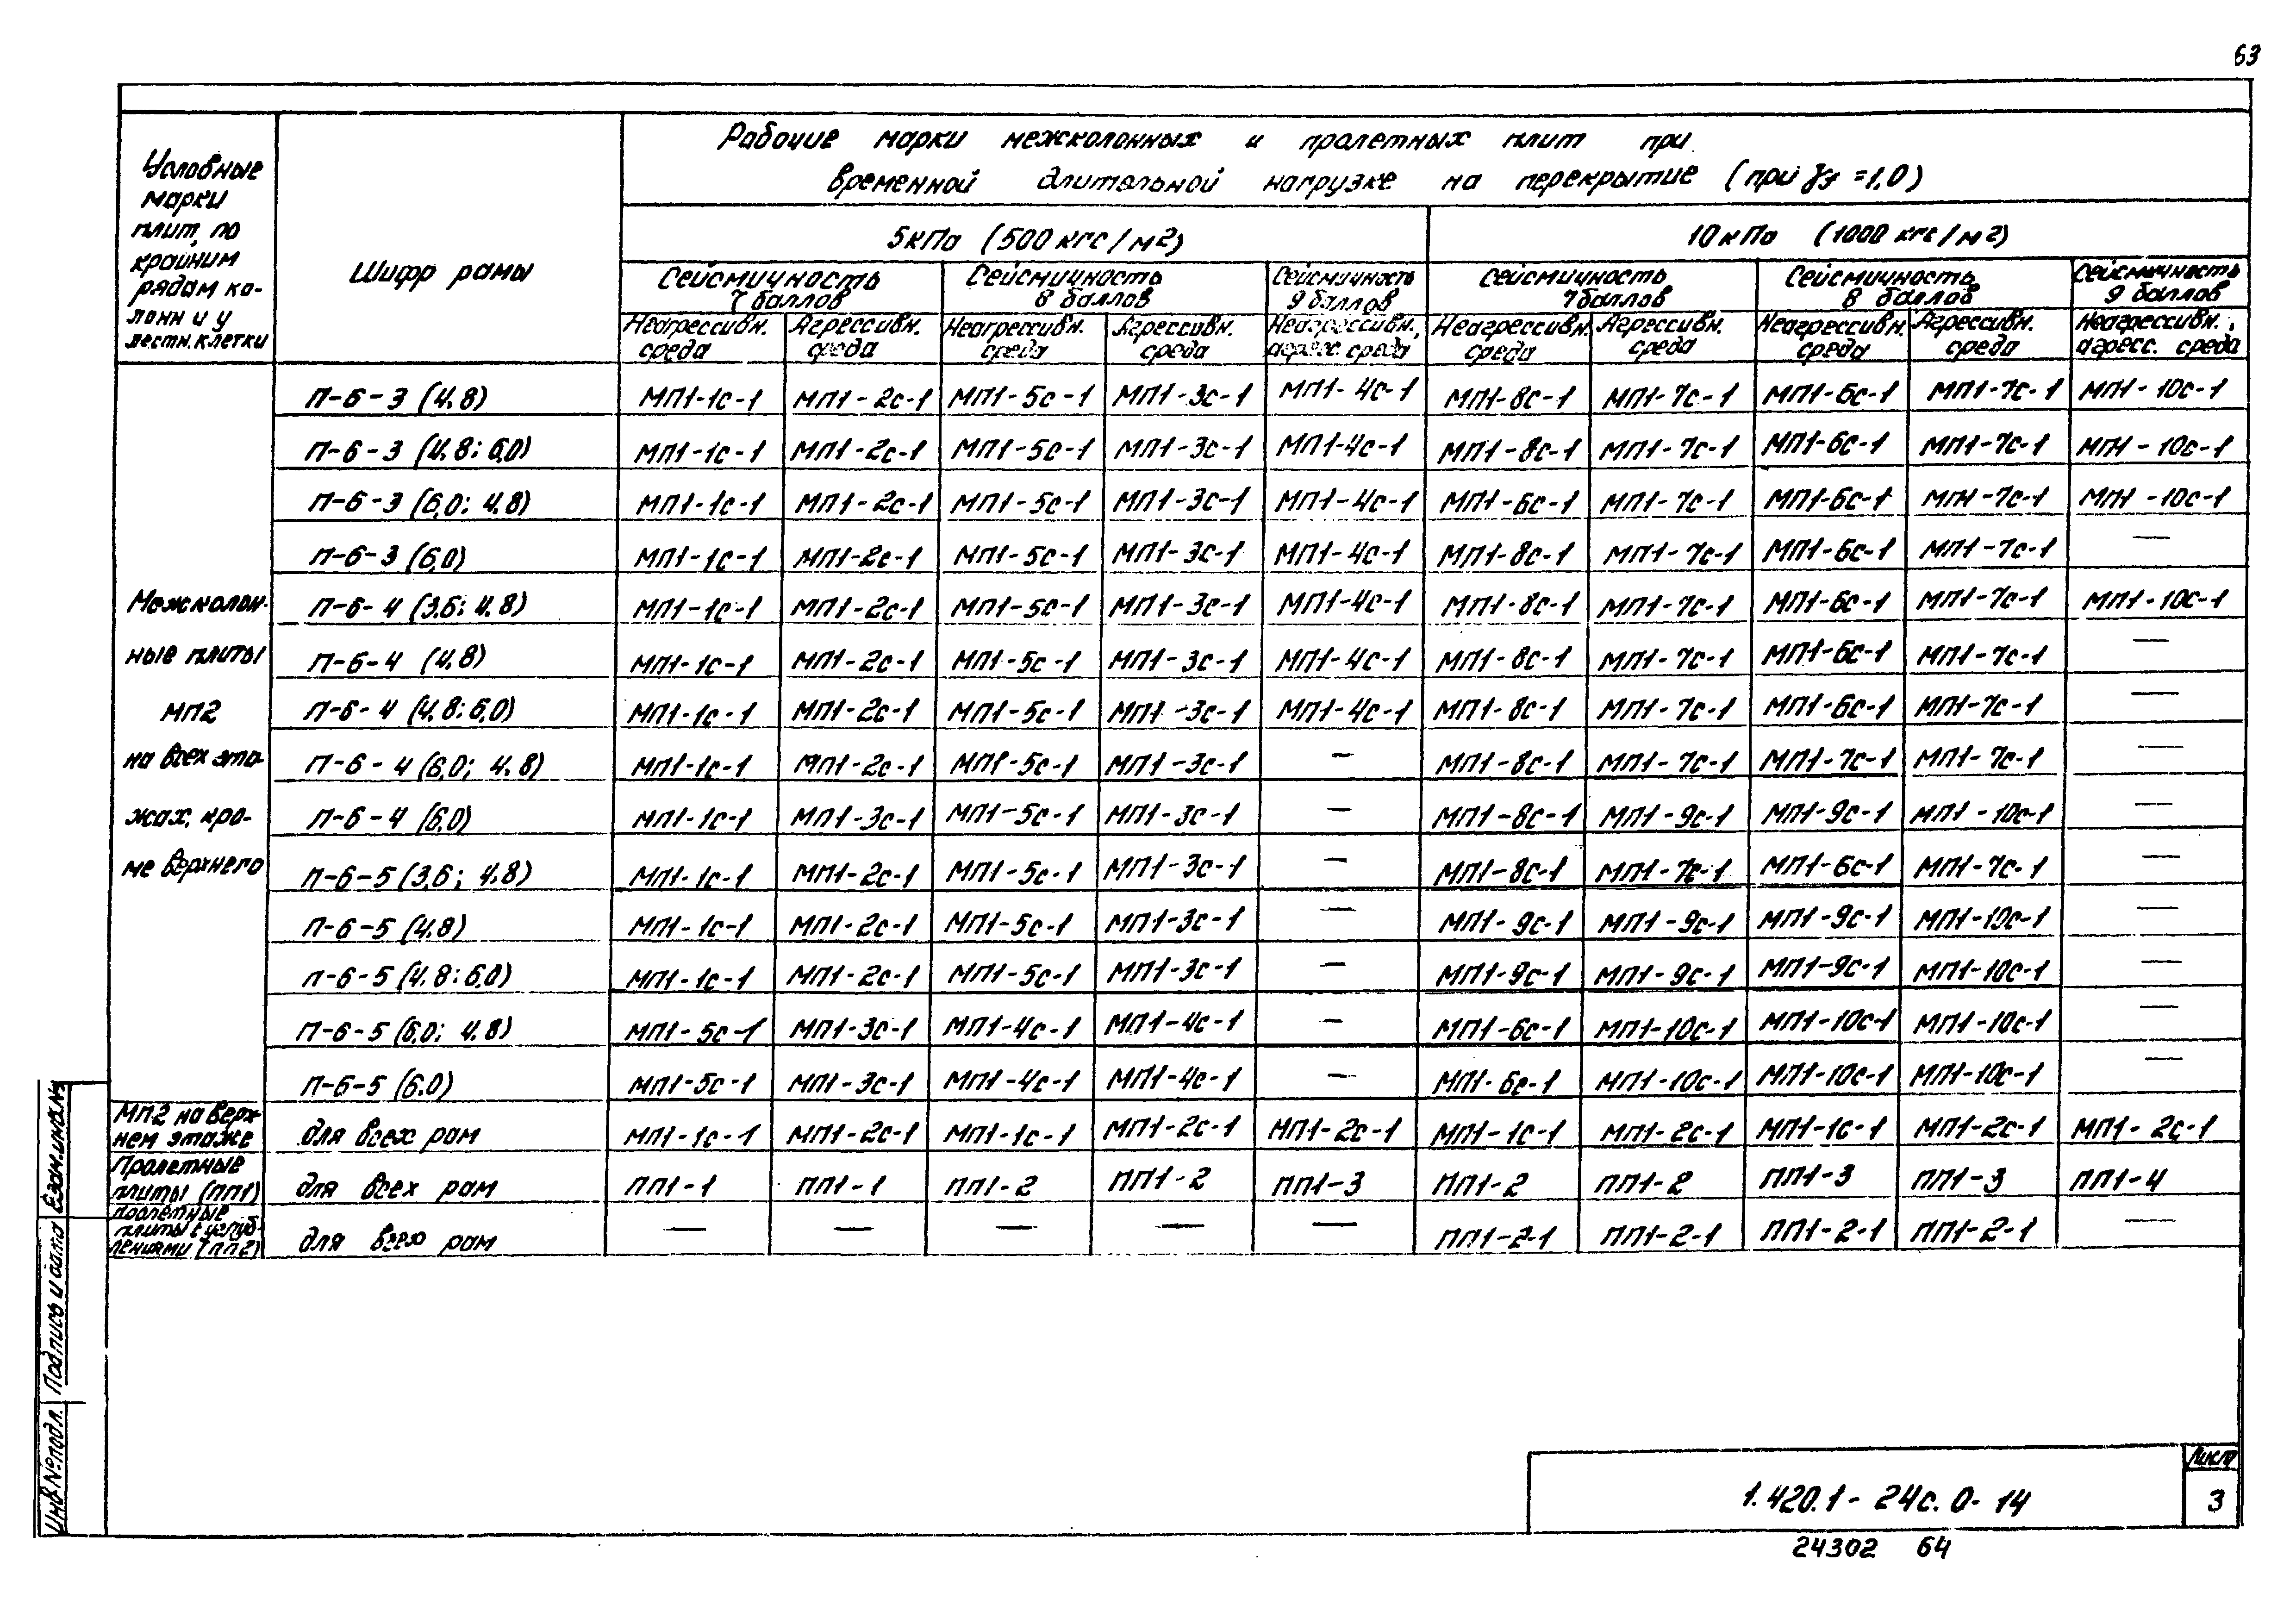 63
Условные
марки
плит, по
крайним
рядам ко-
лонн и у
лестн. клетки
Шифр рамы
Рабочие марки межколонных и пролетных плит при
временной длительной нагрузке на перекрытие (при γf =1,0)
5 кПа (500 кгс/м2)
10 кПа (1000 кгс/м2)
Сейсмичность 7 баллов
Сейсмичность 8 баллов
Сейсмичность 9 баллов
Сейсмичность 7 баллов
Сейсмичность 8 баллов
Сейсмичность 9 баллов
Неагрессивн. среда
Агрессивн. среда
Неагрессивн. среда
Агрессивн. среда
Неагрессивн., агресс. среда
Неагрессивн. среда
Агрессивн. среда
Неагрессивн. среда
Агрессивн. среда
Неагрессивн., агресс. среда
П-6-3 (4.8) МП1-1с-1 МП1-2с-1 МП1-5с-1 МП1-3с-1 МП1-4с-1 МП1-8с-1 МП1-7с-1 МП1-6с-1 МП1-7с-1 МП1-10с-1
П-6-3 (4.8; 6,0) МП1-1с-1 МП1-2с-1 МП1-5с-1 МП1-3с-1 МП1-4с-1 МП1-8с-1 МП1-7с-1 МП1-6с-1 МП1-7с-1 МП1-10с-1
П-6-3 (6,0; 4.8) МП1-1с-1 МП1-2с-1 МП1-5с-1 МП1-3с-1 МП1-4с-1 МП1-6с-1 МП1-7с-1 МП1-6с-1 МП1-7с-1 МП1-10с-1
П-6-3 (6,0) МП1-1с-1 МП1-2с-1 МП1-5с-1 МП1-3с-1 МП1-4с-1 МП1-8с-1 МП1-7с-1 МП1-6с-1 МП1-7с-1 —
Межколон- П-6-4 (3.6; 4.8) МП1-1с-1 МП1-2с-1 МП1-5с-1 МП1-3с-1 МП1-4с-1 МП1-8с-1 МП1-7с-1 МП1-6с-1 МП1-7с-1 МП1-10с-1
ные плиты П-6-4 (4.8) МП1-1с-1 МП1-2с-1 МП1-5с-1 МП1-3с-1 МП1-4с-1 МП1-8с-1 МП1-7с-1 МП1-6с-1 МП1-7с-1 —
МП2 П-6-4 (4.8; 6,0) МП1-1с-1 МП1-2с-1 МП1-5с-1 МП1-3с-1 МП1-4с-1 МП1-8с-1 МП1-7с-1 МП1-6с-1 МП1-7с-1 —
на всех эта- П-6-4 (6,0; 4.8) МП1-1с-1 МП1-2с-1 МП1-5с-1 МП1-3с-1 — МП1-8с-1 МП1-7с-1 МП1-7с-1 МП1-7с-1 —
жах, кро- П-6-4 (6,0) МП1-1с-1 МП1-3с-1 МП1-5с-1 МП1-3с-1 — МП1-8с-1 МП1-9с-1 МП1-9с-1 МП1-10с-1 —
ме верхнего П-6-5 (3,6; 4.8) МП1-1с-1 МП1-2с-1 МП1-5с-1 МП1-3с-1 — МП1-8с-1 МП1-7с-1 МП1-6с-1 МП1-7с-1 —
П-6-5 (4.8) МП1-1с-1 МП1-2с-1 МП1-5с-1 МП1-3с-1 — МП1-9с-1 МП1-9с-1 МП1-9с-1 МП1-10с-1 —
П-6-5 (4.8; 6,0) МП1-1с-1 МП1-2с-1 МП1-5с-1 МП1-3с-1 — МП1-9с-1 МП1-9с-1 МП1-9с-1 МП1-10с-1 —
П-6-5 (6,0; 4.8) МП1-5с-1 МП1-3с-1 МП1-4с-1 МП1-4с-1 — МП1-6с-1 МП1-10с-1 МП1-10с-1 МП1-10с-1 —
П-6-5 (6.0) МП1-5с-1 МП1-3с-1 МП1-4с-1 МП1-4с-1 — МП1-6с-1 МП1-10с-1 МП1-10с-1 МП1-10с-1 —
МП2 на верх-
нем этаже для всех рам МП1-1с-1 МП1-2с-1 МП1-1с-1 МП1-2с-1 МП1-2с-1 МП1-1с-1 МП1-2с-1 МП1-1с-1 МП1-2с-1 МП1-2с-1
Пролетные
плиты (ПП1) для всех рам ПП1-1 ПП1-1 ПП1-2 ПП1-2 ПП1-3 ПП1-2 ПП1-2 ПП1-3 ПП1-3 ПП1-4
Пролетные
плиты с углуб-
лениями (ПП2) для всех рам — — — — — ПП1-2-1 ПП1-2-1 ПП1-2-1 ПП1-2-1 —
Взам.инв.№
Подпись и дата
Инв.№ подл.
1.420.1-24с.0-14
Лист
3
24302 64